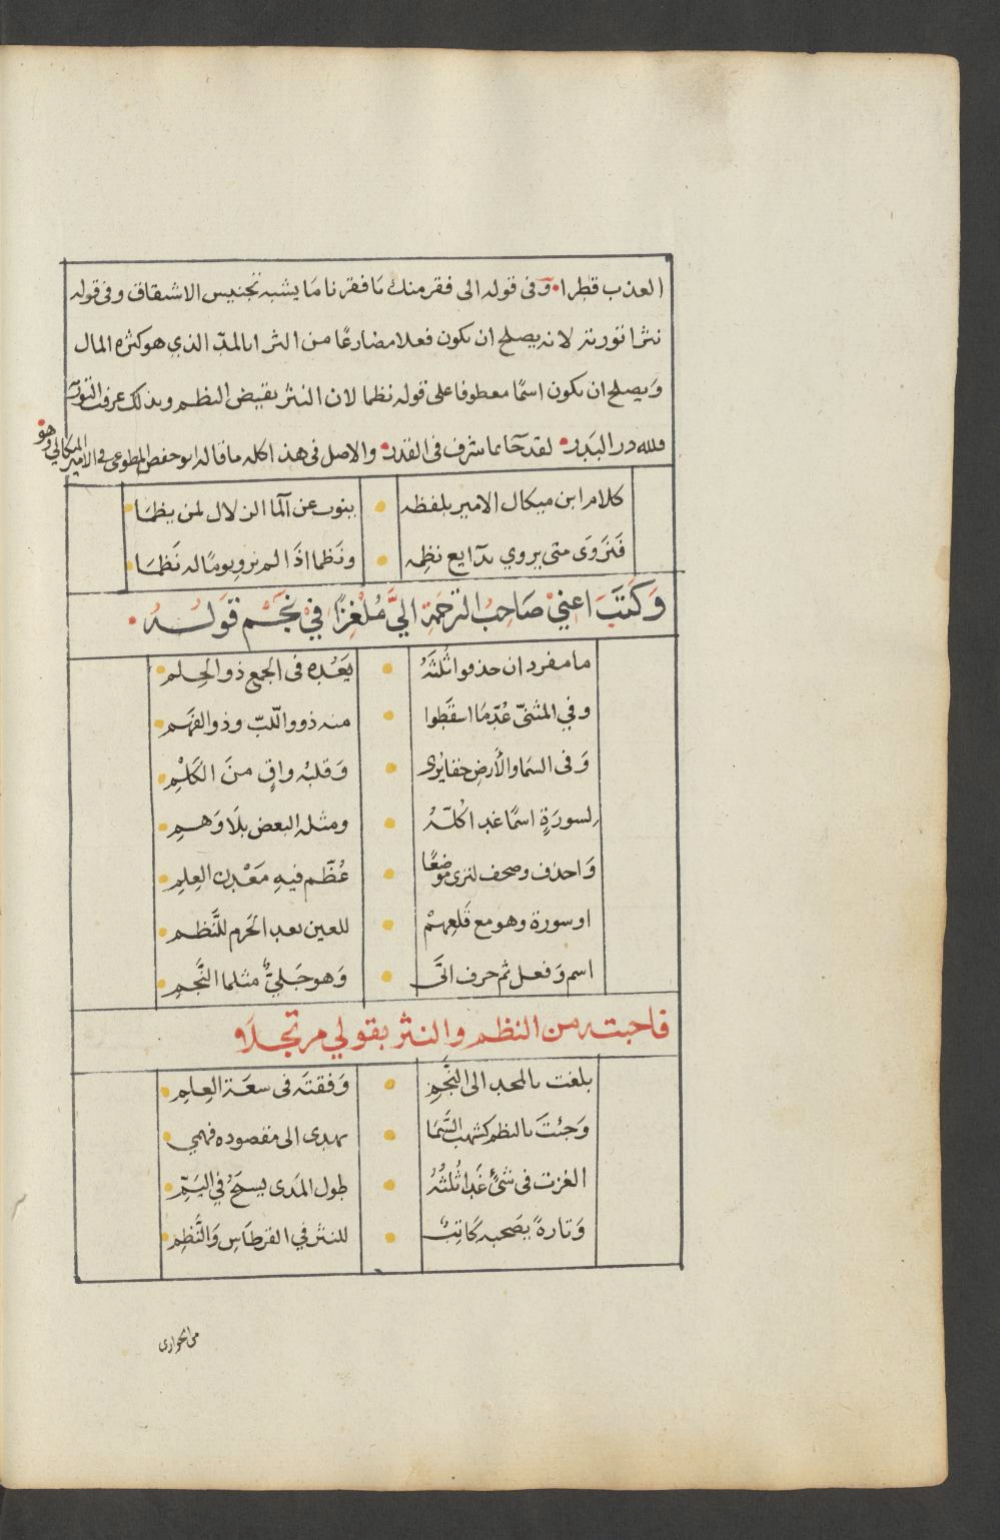 العذب قطرا • وفى قوله الى فقر منك ما فقرنا ما يشبه تجنيس الاشتقاق وفى قوله
نثرا تورته لانه يصلح ان يكون فعلا مضارعًا من الثرا بالمدّ الذي هو كثره المال
ويصلح ان يكون اسمًا معطوفا على قوله نظما لان النثر نقيض النظم وبذلك عرفت التورية
ولله در البَدر • لقد حَآ بما شرف فى القدر • والاصل فى هذا كله ما قاله ابو حفص المطوعى فى الامير الميكالي وهو
كلام ابن ميكال الامير بلفظه • ينوب عن آلما الزلال لمن يظمَا •
فَنَروَى متى يروي بدَآيع نظِمه • ونَظما اذَا لم نرو يومًا له نَظمَا •
وَكَتَبَ اعنيْ صَاحِبُ الترجَمَةِ اليَّ مُلْغِزًا فيْ نجَمْ قَولـــهُ •
ما مفرد ان حذفوا ثُلثَهُ • يَعَدُه فى الجمع ذو الحِلم •
وفي المثنىّ عُدّ مَا اسقَطوا • منه ذوو اللّبّ وذو الفهَم •
وَفى السمَا والأرضِ حقا يُرى • وَقلبُه واقٍ منَ الكَلْمِ •
لسورَةٍ اسمًا غدا كُلّهُ • ومثله البعض بلَا وَهمِ •
وَاحذف وصحف لترى موضعًا • عُظّم فيهِ مَعْدن العِلمِ •
او سورة وهو مع قَلعِهمْ • للعين بعد الخَرم للنَّظم •
اسم وَفعل ثم حرف اتَى • وَهو جَليٌّ مثلما النَّجمِ •
فاجبته من النظم والنثر بقولي مرتجلًا
بلغت بالمجد الى النَّجمِ • وَفقتَه فى سعَة العِلمِ •
وَجئتَ بالنظم كشهب السَّمَا • يهدى الى مقصوده فهمي •
الغزت فى شئٍ غَدا ثُلثُهُ • طول المَدى يسبَحُ في اليَمّ •
وَتارةً يصَحبه كَاتِبٌ • للنثر في القرطَاسِ وَالنَّظمِ •